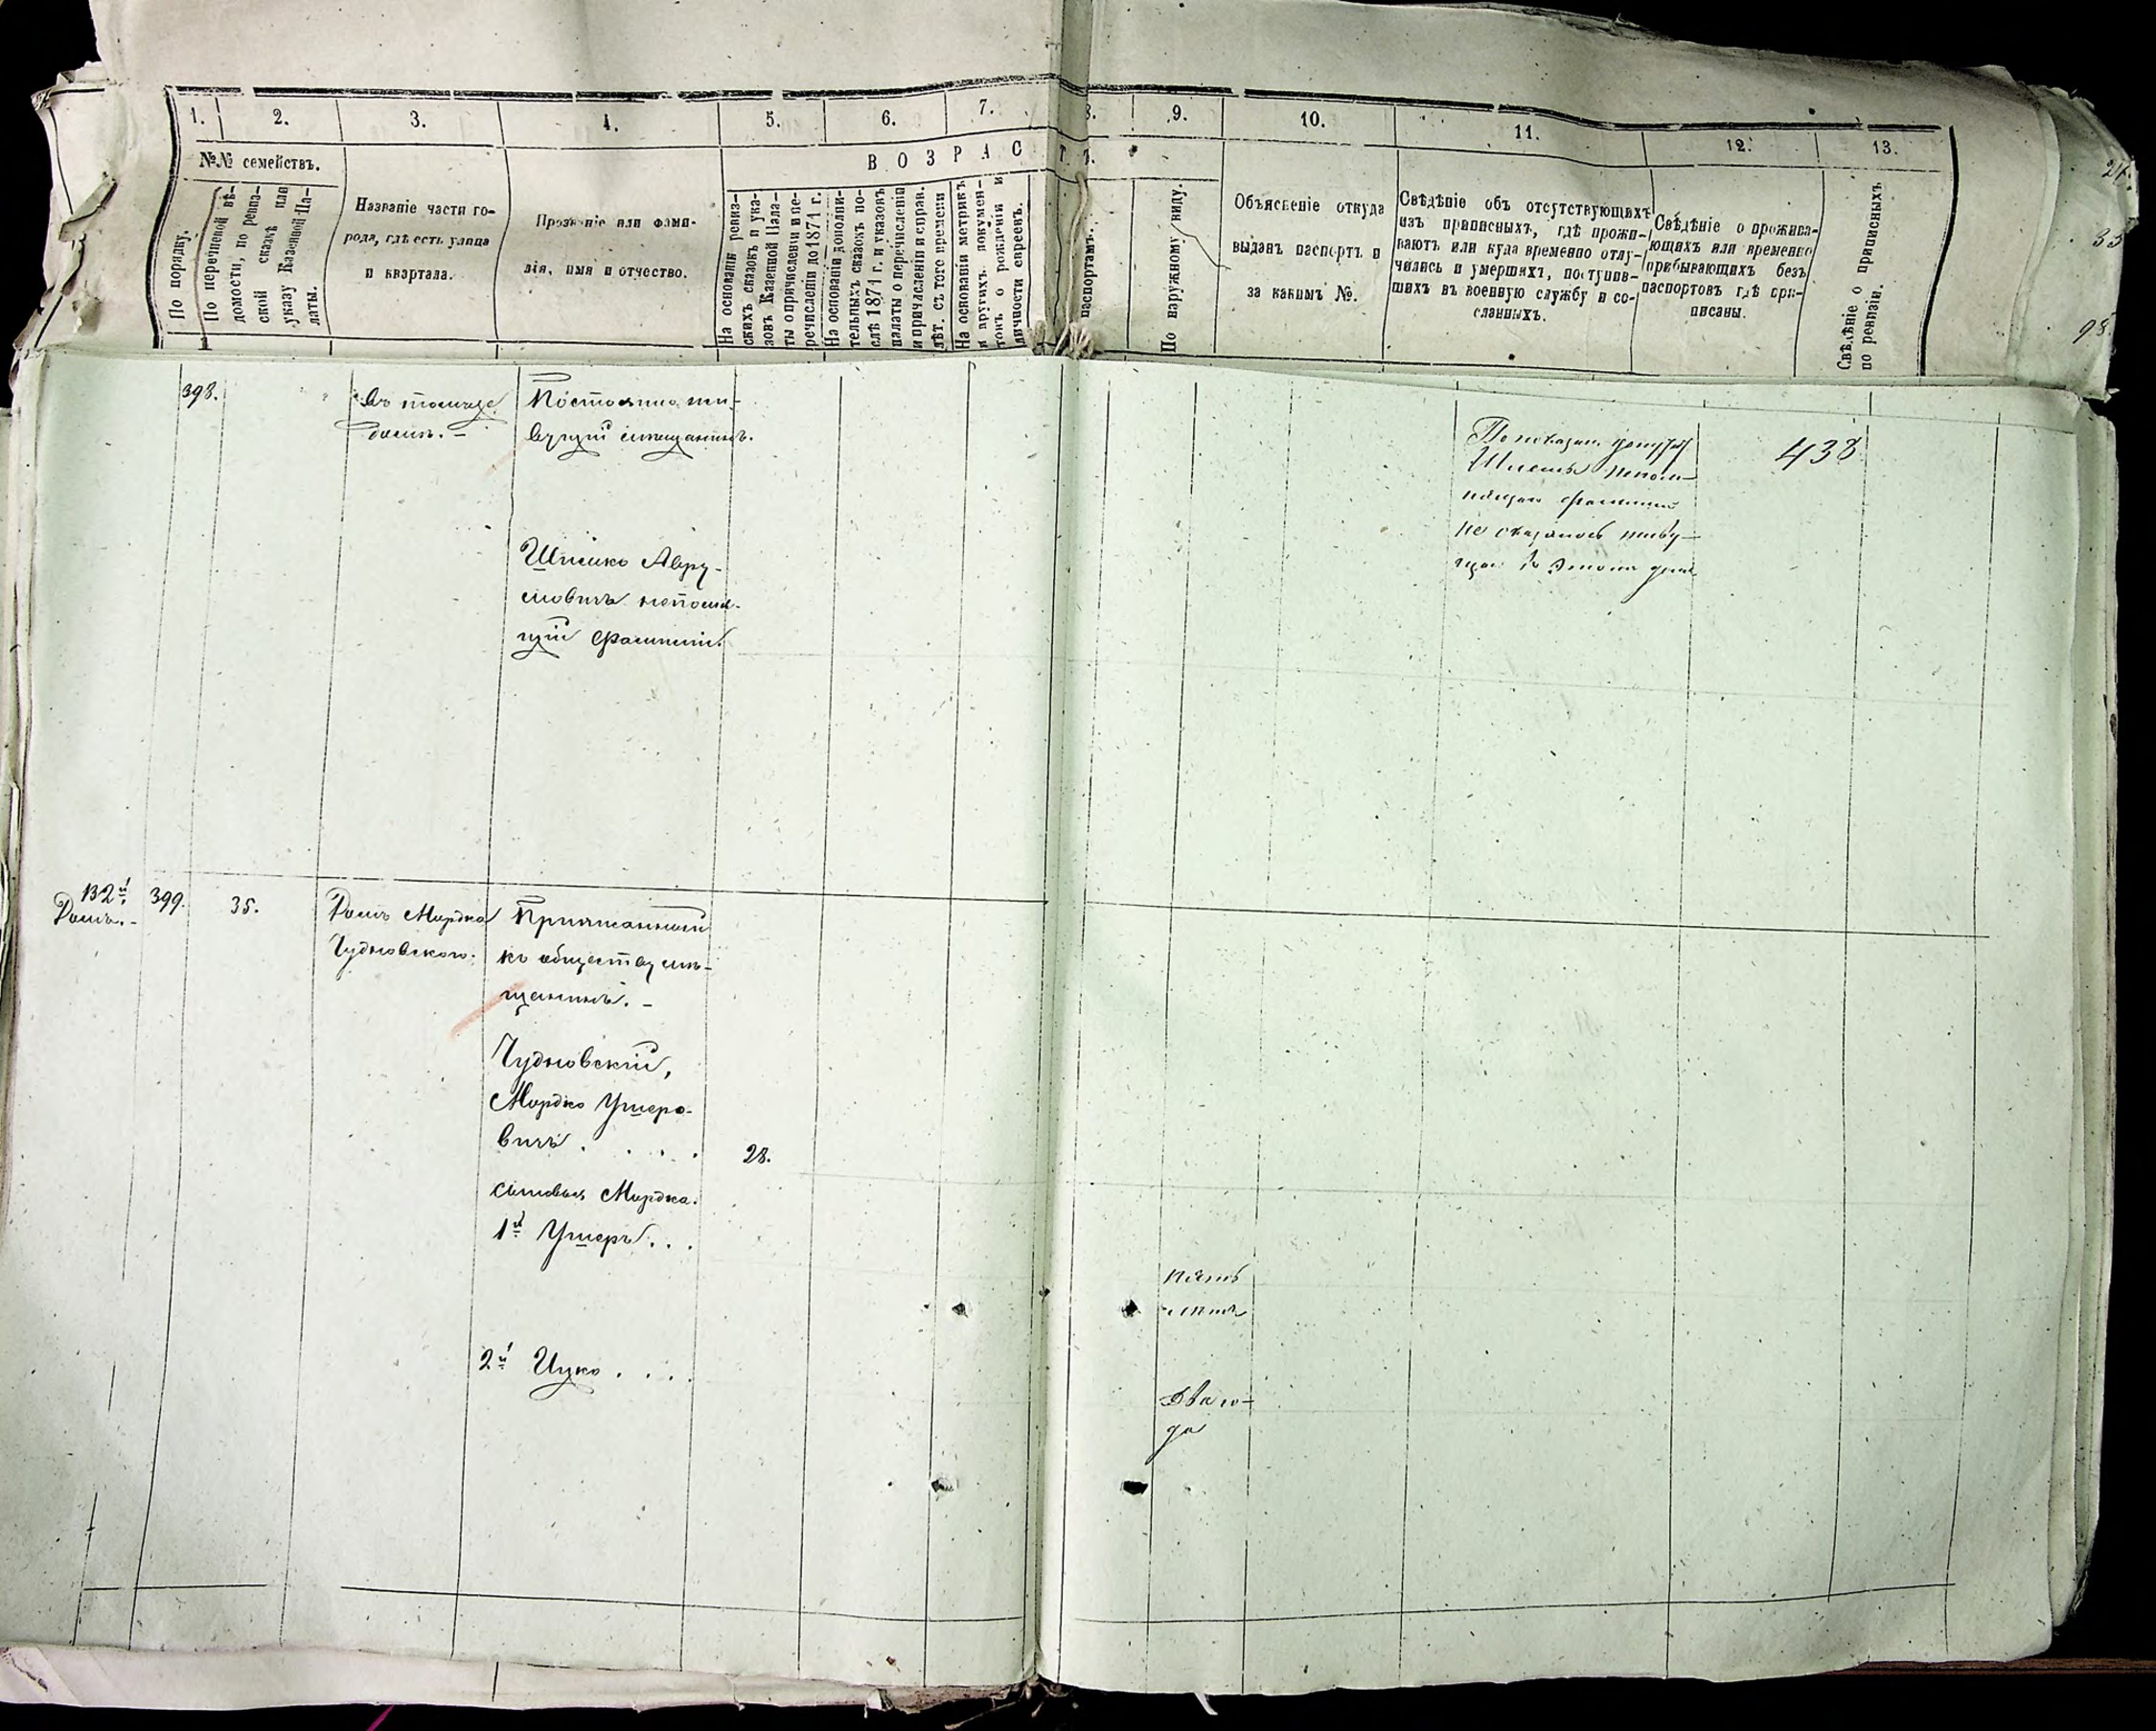 1. 2. 3. 4. 5. 6. 7. 8. 9. 10. 11. 12. 13.
№№ семействъ.
В О З Р А С Т Ъ.
По порядку.
По перечневой вѣ-
домости, по ревиз-
ской сказкѣ или
указу Казенной Па-
латы.
Названіе части го-
рода, гдѣ есть улица
и квартала.
Прозваніе или фами-
лія, имя и отчество.
На основаніи ревиз-
скихъ сказокъ и ука-
зовъ Казенной Пала-
ты о причисленіи и пе-
речисленіи до 1871 г.
На основаніи дополни-
тельныхъ сказокъ по-
слѣ 1871 г. и указовъ
палаты о перечисленіи
и причисленіи и справ.
лѣт. съ того времени
На основаніи метрикъ
и другихъ докумен-
товъ о рожденіи и
личности евреевъ.
паспортамъ.
По наружному виду.
Объясненіе откуда
выданъ паспортъ и
за какимъ №.
Свѣдѣніе объ отсутствующихъ
изъ приписныхъ, гдѣ прожи-
ваютъ или куда временно отлу-
чились и умершихъ, поступив-
шихъ въ военную службу и со-
сланныхъ.
Свѣдѣніе о прожива-
ющихъ или временно
прибывающихъ безъ
паспортовъ гдѣ при-
писаны.
Свѣдѣніе о приписныхъ
по ревизіи.
24.
33
98
398.
Въ томъ же
домѣ. –
Постоянно жи-
вущій мѣщанинъ.
Шлемко Авру-
мовичъ непомня-
щій фамиліи.
По показан.
Шлемъ непом-
нящан фамиліи
не оказалось живу-
щан въ этомъ домѣ
438
132й
Домъ. -
399.
35.
Домъ Мордка
Чудновскаго.
Приписанный
къ обществу мѣ-
щанинъ. –
Чудновскій,
Мордко Ушеро-
вичъ . . . .
28.
Сыновья Мордка.
1й Ушеръ . . .
пять
лѣтъ
2й Ицко . . . .
Два го-
да